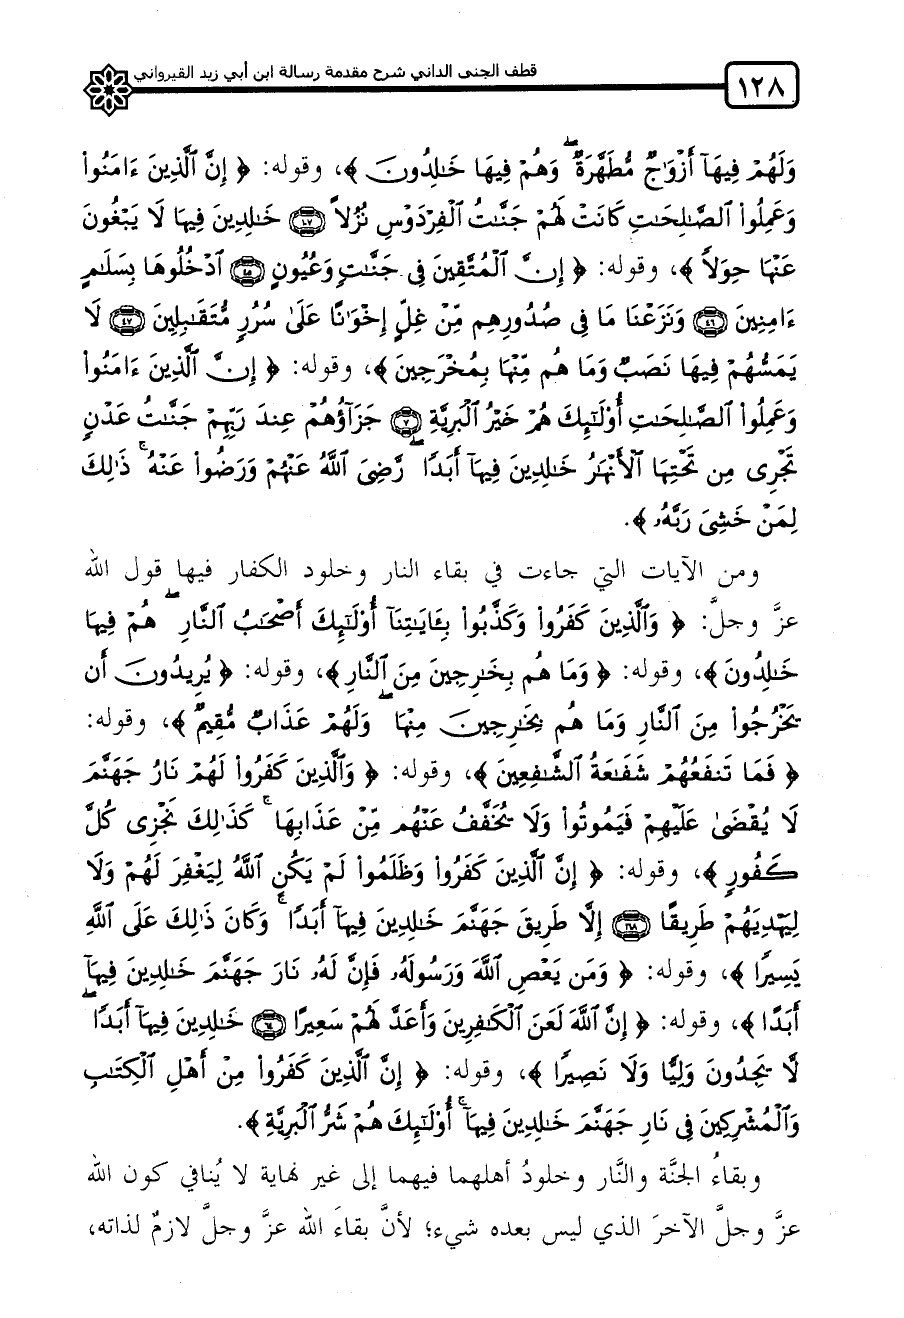 ١٢٨ قطف الجنى الداني شرح مقدمة رسالة ابن أبي زيد القيرواني
وَلَهُمْ فِيهَآ أَزْوَٰجٌ مُّطَهَّرَةٌ ۖ وَهُمْ فِيهَا خَـٰلِدُونَ ﴾، وقوله: ﴿ إِنَّ ٱلَّذِينَ ءَامَنُوا۟
وَعَمِلُوا۟ ٱلصَّـٰلِحَـٰتِ كَانَتْ لَهُمْ جَنَّـٰتُ ٱلْفِرْدَوْسِ نُزُلًا ﴿١٠٧﴾ خَـٰلِدِينَ فِيهَا لَا يَبْغُونَ
عَنْهَا حِوَلًا ﴾، وقوله: ﴿ إِنَّ ٱلْمُتَّقِينَ فِى جَنَّـٰتٍ وَعُيُونٍ ﴿٤٥﴾ ٱدْخُلُوهَا بِسَلَـٰمٍ
ءَامِنِينَ ﴿٤٦﴾ وَنَزَعْنَا مَا فِى صُدُورِهِم مِّنْ غِلٍّ إِخْوَٰنًا عَلَىٰ سُرُرٍ مُّتَقَـٰبِلِينَ ﴿٤٧﴾ لَا
يَمَسُّهُمْ فِيهَا نَصَبٌ وَمَا هُم مِّنْهَا بِمُخْرَجِينَ ﴾، وقوله: ﴿ إِنَّ ٱلَّذِينَ ءَامَنُوا۟
وَعَمِلُوا۟ ٱلصَّـٰلِحَـٰتِ أُو۟لَـٰٓئِكَ هُمْ خَيْرُ ٱلْبَرِيَّةِ ﴿٧﴾ جَزَآؤُهُمْ عِندَ رَبِّهِمْ جَنَّـٰتُ عَدْنٍ
تَجْرِى مِن تَحْتِهَا ٱلْأَنْهَـٰرُ خَـٰلِدِينَ فِيهَآ أَبَدًا ۖ رَّضِىَ ٱللَّهُ عَنْهُمْ وَرَضُوا۟ عَنْهُ ۚ ذَٰلِكَ
لِمَنْ خَشِىَ رَبَّهُۥ ﴾.
ومن الآيات التي جاءت في بقاء النار وخلود الكفار فيها قول الله
عزَّ وجلَّ: ﴿ وَٱلَّذِينَ كَفَرُوا۟ وَكَذَّبُوا۟ بِـَٔايَـٰتِنَآ أُو۟لَـٰٓئِكَ أَصْحَـٰبُ ٱلنَّارِ ۖ هُمْ فِيهَا
خَـٰلِدُونَ ﴾، وقوله: ﴿ وَمَا هُم بِخَـٰرِجِينَ مِنَ ٱلنَّارِ ﴾، وقوله: ﴿ يُرِيدُونَ أَن
يَخْرُجُوا۟ مِنَ ٱلنَّارِ وَمَا هُم بِخَـٰرِجِينَ مِنْهَا ۖ وَلَهُمْ عَذَابٌ مُّقِيمٌ ﴾، وقوله:
﴿ فَمَا تَنفَعُهُمْ شَفَـٰعَةُ ٱلشَّـٰفِعِينَ ﴾، وقوله: ﴿ وَٱلَّذِينَ كَفَرُوا۟ لَهُمْ نَارُ جَهَنَّمَ
لَا يُقْضَىٰ عَلَيْهِمْ فَيَمُوتُوا۟ وَلَا يُخَفَّفُ عَنْهُم مِّنْ عَذَابِهَا ۚ كَذَٰلِكَ نَجْزِى كُلَّ
كَفُورٍ ﴾، وقوله: ﴿ إِنَّ ٱلَّذِينَ كَفَرُوا۟ وَظَلَمُوا۟ لَمْ يَكُنِ ٱللَّهُ لِيَغْفِرَ لَهُمْ وَلَا
لِيَهْدِيَهُمْ طَرِيقًا ﴿١٦٨﴾ إِلَّا طَرِيقَ جَهَنَّمَ خَـٰلِدِينَ فِيهَآ أَبَدًا ۚ وَكَانَ ذَٰلِكَ عَلَى ٱللَّهِ
يَسِيرًا ﴾، وقوله: ﴿ وَمَن يَعْصِ ٱللَّهَ وَرَسُولَهُۥ فَإِنَّ لَهُۥ نَارَ جَهَنَّمَ خَـٰلِدِينَ فِيهَآ
أَبَدًا ﴾، وقوله: ﴿ إِنَّ ٱللَّهَ لَعَنَ ٱلْكَـٰفِرِينَ وَأَعَدَّ لَهُمْ سَعِيرًا ﴿٦٤﴾ خَـٰلِدِينَ فِيهَآ أَبَدًا ۖ
لَّا يَجِدُونَ وَلِيًّا وَلَا نَصِيرًا ﴾، وقوله: ﴿ إِنَّ ٱلَّذِينَ كَفَرُوا۟ مِنْ أَهْلِ ٱلْكِتَـٰبِ
وَٱلْمُشْرِكِينَ فِى نَارِ جَهَنَّمَ خَـٰلِدِينَ فِيهَآ ۚ أُو۟لَـٰٓئِكَ هُمْ شَرُّ ٱلْبَرِيَّةِ ﴾.
وبقاءُ الجنَّة والنَّار وخلودُ أهلهما فيهما إلى غير نهاية لا يُنافي كون الله
عزَّ وجلَّ الآخرَ الذي ليس بعده شيء؛ لأنَّ بقاءَ الله عزَّ وجلَّ لازمٌ لذاته،